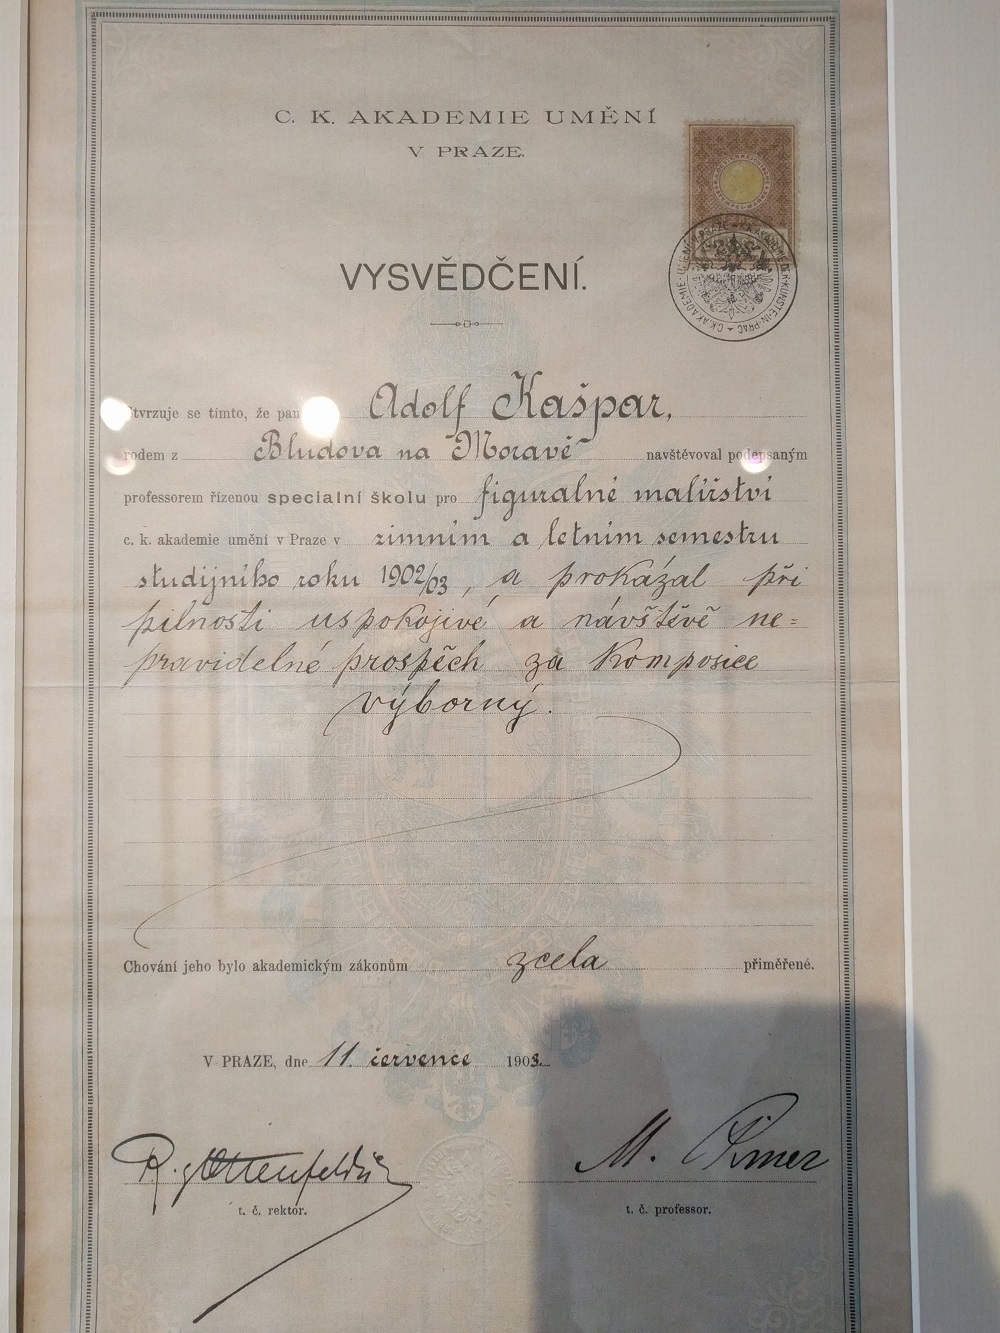 C. K. AKADEMIE UMĚNÍ
V PRAZE.
VYSVĚDČENÍ.
C.K. AKADEMIE UMĚNÍ V PRAZE K.K. AKADEMIE DER KÜNSTE IN PRAG
tvrzuje se tímto, že pan Adolf Kašpar,
rodem z Bludova na Moravě navštěvoval podepsaným
professorem řízenou specialní školu pro figuralné malířství
c. k. akademie umění v Praze v zimním a letním semestru
studijního roku 1902/03, a prokázal při
pilnosti uspokojivé a návštěvě ne=
pravidelné prospěch za komposice
výborný.
Chování jeho bylo akademickým zákonům zcela přiměřené.
V PRAZE, dne 11. července 1903.
R. Ottenfeld M. Pirner
t. č. rektor. t. č. professor.